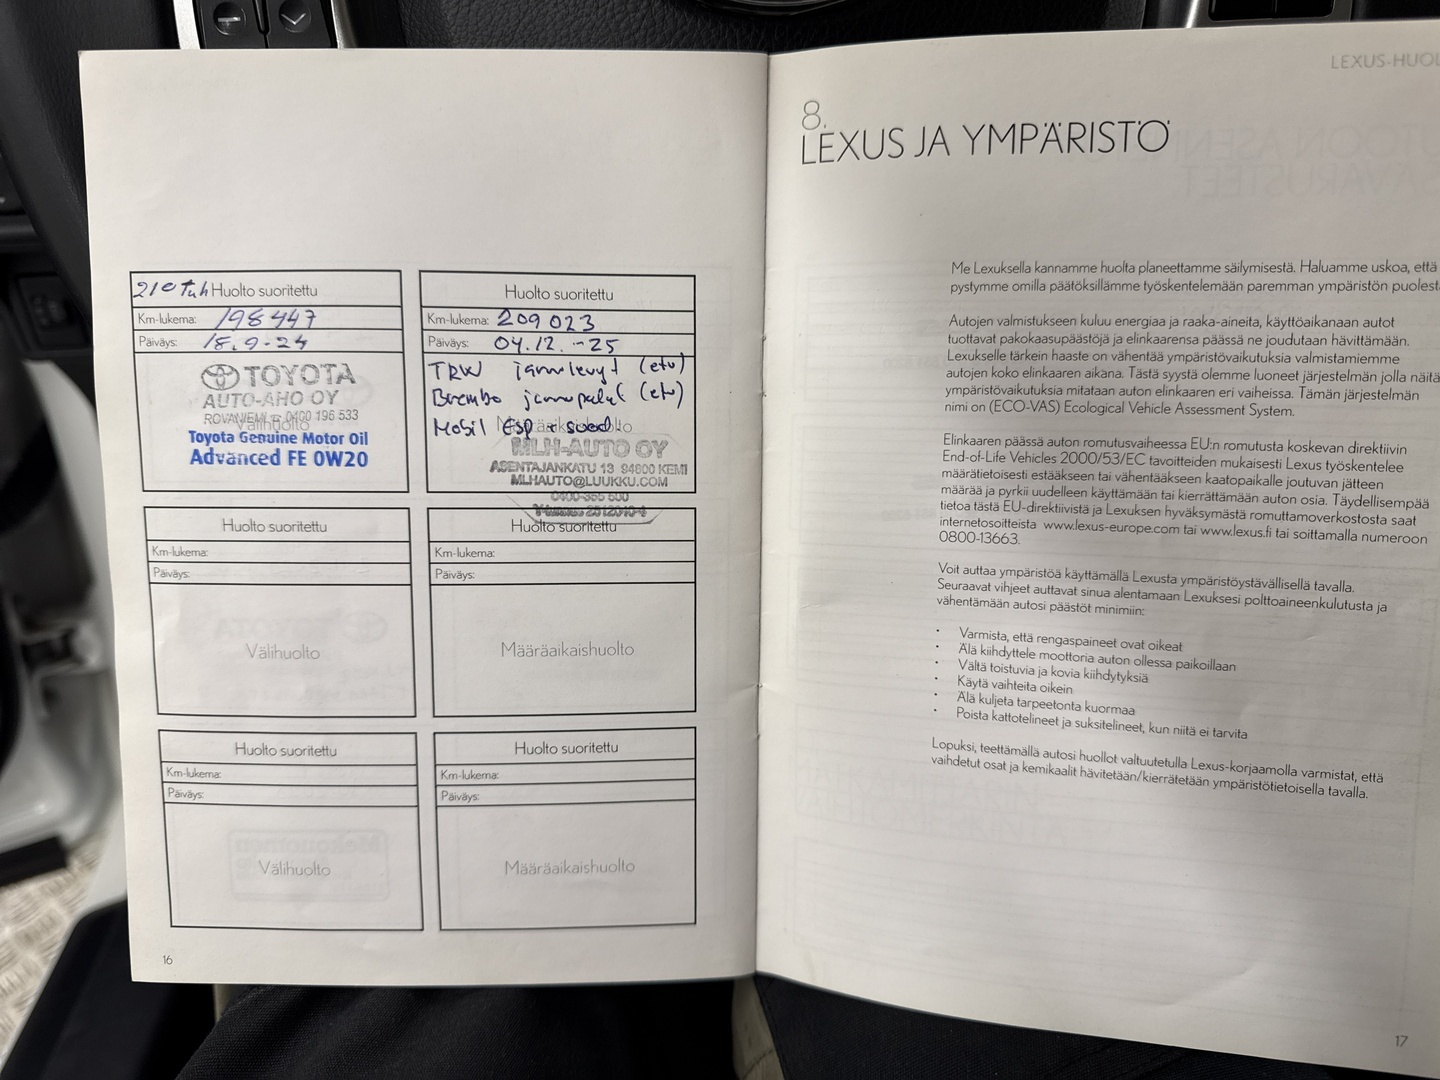 210 tuh Huolto suoritettu
Km-lukema: 198447
Päiväys: 18.9-24
TOYOTA
AUTO-AHO OY
ROVANIEMI ☎ 0400 196 533
Välihuolto
Toyota Genuine Motor Oil
Advanced FE 0W20
Huolto suoritettu
Km-lukema: 209 023
Päiväys: 04.12.-25
TRW jarrulevyt (etu)
Brembo jarrupalat (etu)
Mobil ESP + suod.
Määräaikaishuolto
MLH-AUTO OY
ASENTAJANKATU 13 94600 KEMI
MLHAUTO@LUUKKU.COM
0400-355 500
Huolto suoritettu
Km-lukema:
Päiväys:
Välihuolto
Huolto suoritettu
Km-lukema:
Päiväys:
Määräaikaishuolto
Huolto suoritettu
Km-lukema:
Päiväys:
Välihuolto
Huolto suoritettu
Km-lukema:
Päiväys:
Määräaikaishuolto
16
LEXUS-HUOL
8.
LEXUS JA YMPÄRISTÖ
Me Lexuksella kannamme huolta planeettamme säilymisestä. Haluamme uskoa, että
pystymme omilla päätöksillämme työskentelemään paremman ympäristön puolest
Autojen valmistukseen kuluu energiaa ja raaka-aineita, käyttöaikanaan autot
tuottavat pakokaasupäästöjä ja elinkaarensa päässä ne joudutaan hävittämään.
Lexukselle tärkein haaste on vähentää ympäristövaikutuksia valmistamiemme
autojen koko elinkaaren aikana. Tästä syystä olemme luoneet järjestelmän jolla näitä
ympäristövaikutuksia mitataan auton elinkaaren eri vaiheissa. Tämän järjestelmän
nimi on (ECO-VAS) Ecological Vehicle Assessment System.
Elinkaaren päässä auton romutusvaiheessa EU:n romutusta koskevan direktiivin
End-of-Life Vehicles 2000/53/EC tavoitteiden mukaisesti Lexus työskentelee
määrätietoisesti estääkseen tai vähentääkseen kaatopaikalle joutuvan jätteen
määrää ja pyrkii uudelleen käyttämään tai kierrättämään auton osia. Täydellisempää
tietoa tästä EU-direktiivistä ja Lexuksen hyväksymästä romuttamoverkostosta saat
internetosoitteista www.lexus-europe.com tai www.lexus.fi tai soittamalla numeroon
0800-13663.
Voit auttaa ympäristöä käyttämällä Lexusta ympäristöystävällisellä tavalla.
Seuraavat vihjeet auttavat sinua alentamaan Lexuksesi polttoaineenkulutusta ja
vähentämään autosi päästöt minimiin:
• Varmista, että rengaspaineet ovat oikeat
• Älä kiihdyttele moottoria auton ollessa paikoillaan
• Vältä toistuvia ja kovia kiihdytyksiä
• Käytä vaihteita oikein
• Älä kuljeta tarpeetonta kuormaa
• Poista kattotelineet ja suksitelineet, kun niitä ei tarvita
Lopuksi, teettämällä autosi huollot valtuutetulla Lexus-korjaamolla varmistat, että
vaihdetut osat ja kemikaalit hävitetään/kierrätetään ympäristötietoisella tavalla.
17